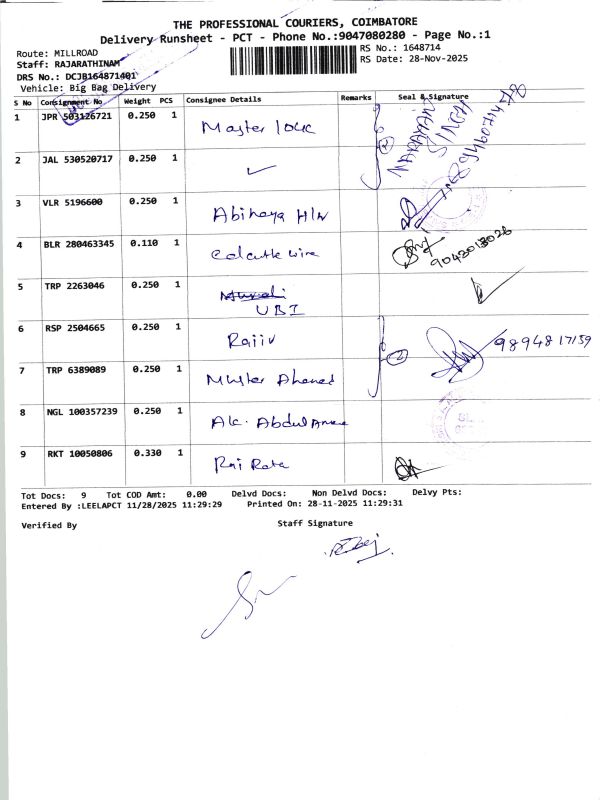 THE PROFESSIONAL COURIERS, COIMBATORE
Delivery Runsheet - PCT - Phone No.:9047080280 - Page No.:1
Route: MILLROAD
Staff: RAJARATHINAM
DRS No.: DCJB164871401
Vehicle: Big Bag Delivery
RS No.: 1648714
RS Date: 28-Nov-2025
S No Consignment No Weight PCS Consignee Details Remarks Seal & Signature
1 JPR 503126721 0.250 1 Master
2 JAL 530520717 0.250 1 ✓
3 VLR 5196600 0.250 1 Abinaya
4 BLR 280463345 0.110 1 wire
9043013026
5 TRP 2263046 0.250 1 UBI
6 RSP 2504665 0.250 1 Rajiv
2 9894817159
7 TRP 6389089 0.250 1 Ahamed
8 NGL 100357239 0.250 1 Abdul
9 RKT 10050806 0.330 1
NARAYAN
SINGH
Tot Docs: 9 Tot COD Amt: 0.00 Delvd Docs: Non Delvd Docs: Delvy Pts:
Entered By :LEELAPCT 11/28/2025 11:29:29 Printed On: 28-11-2025 11:29:31
Verified By Staff Signature